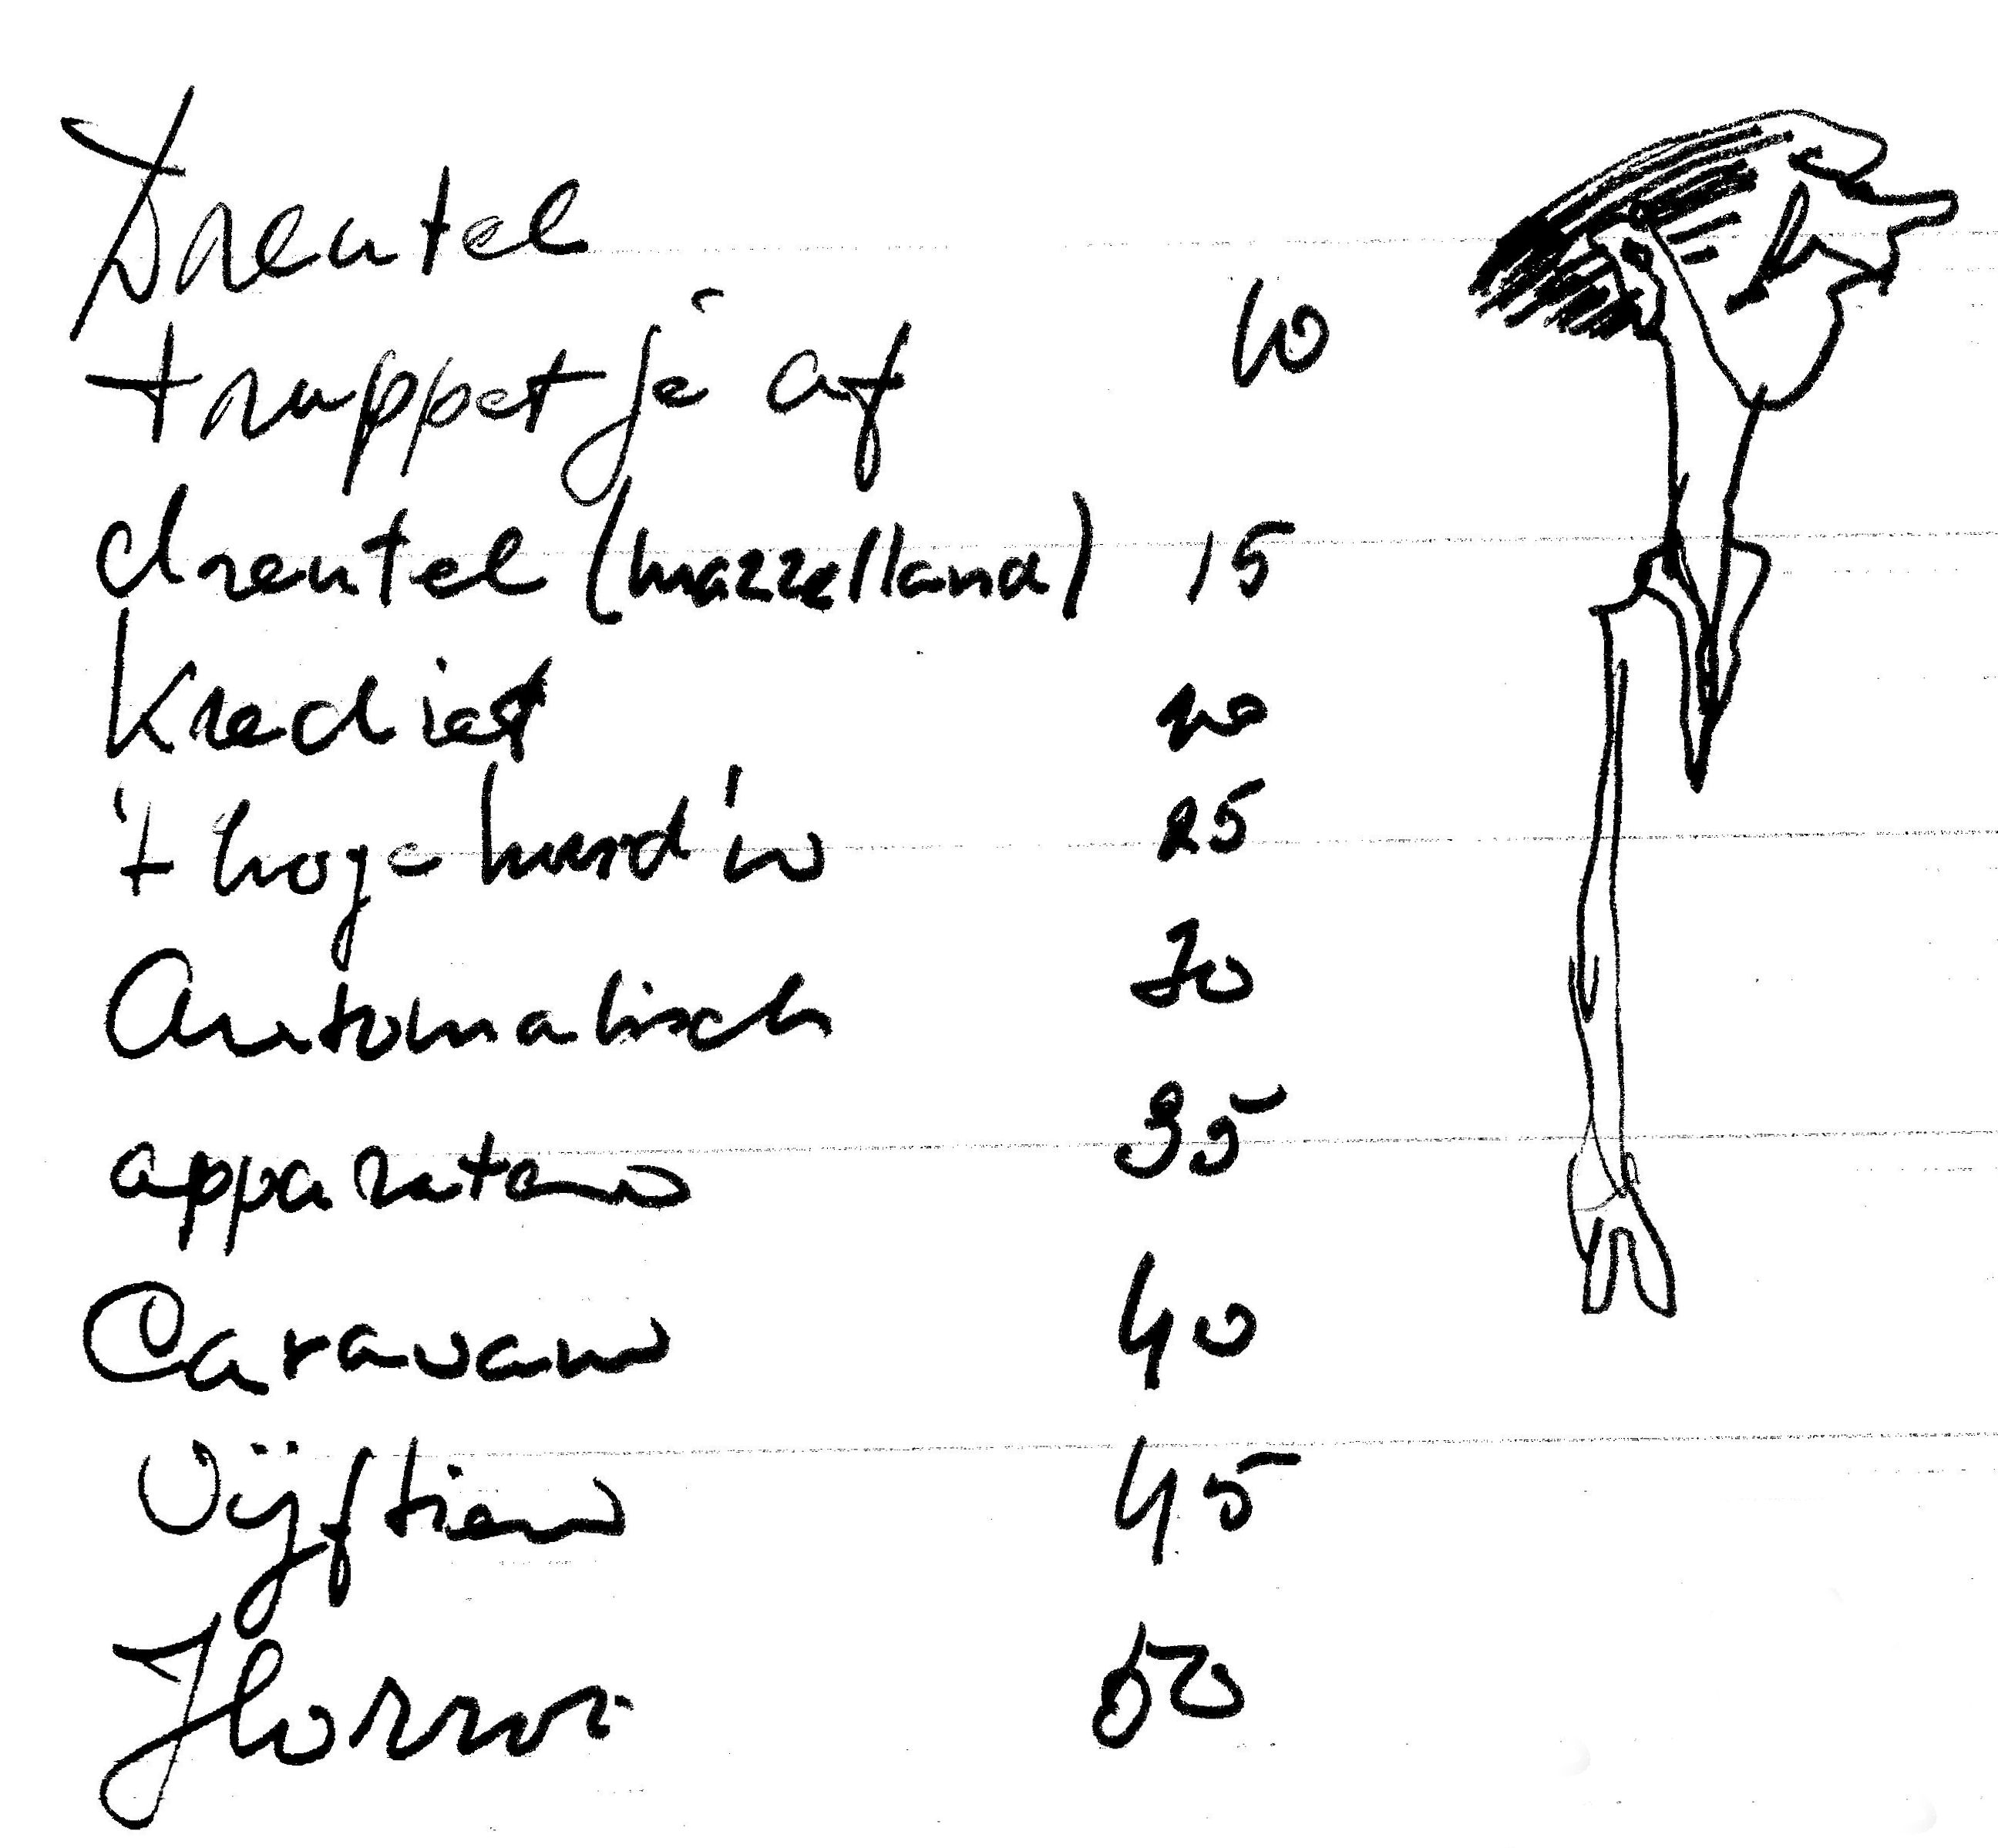 Dreutel
trappetje af 10
dreutel (mazzelland) 15
Krediet 20
't hoge hurd in 25
Automatisch 30
apparaten 35
Caravan 40
Vijftien 45
Horror 50